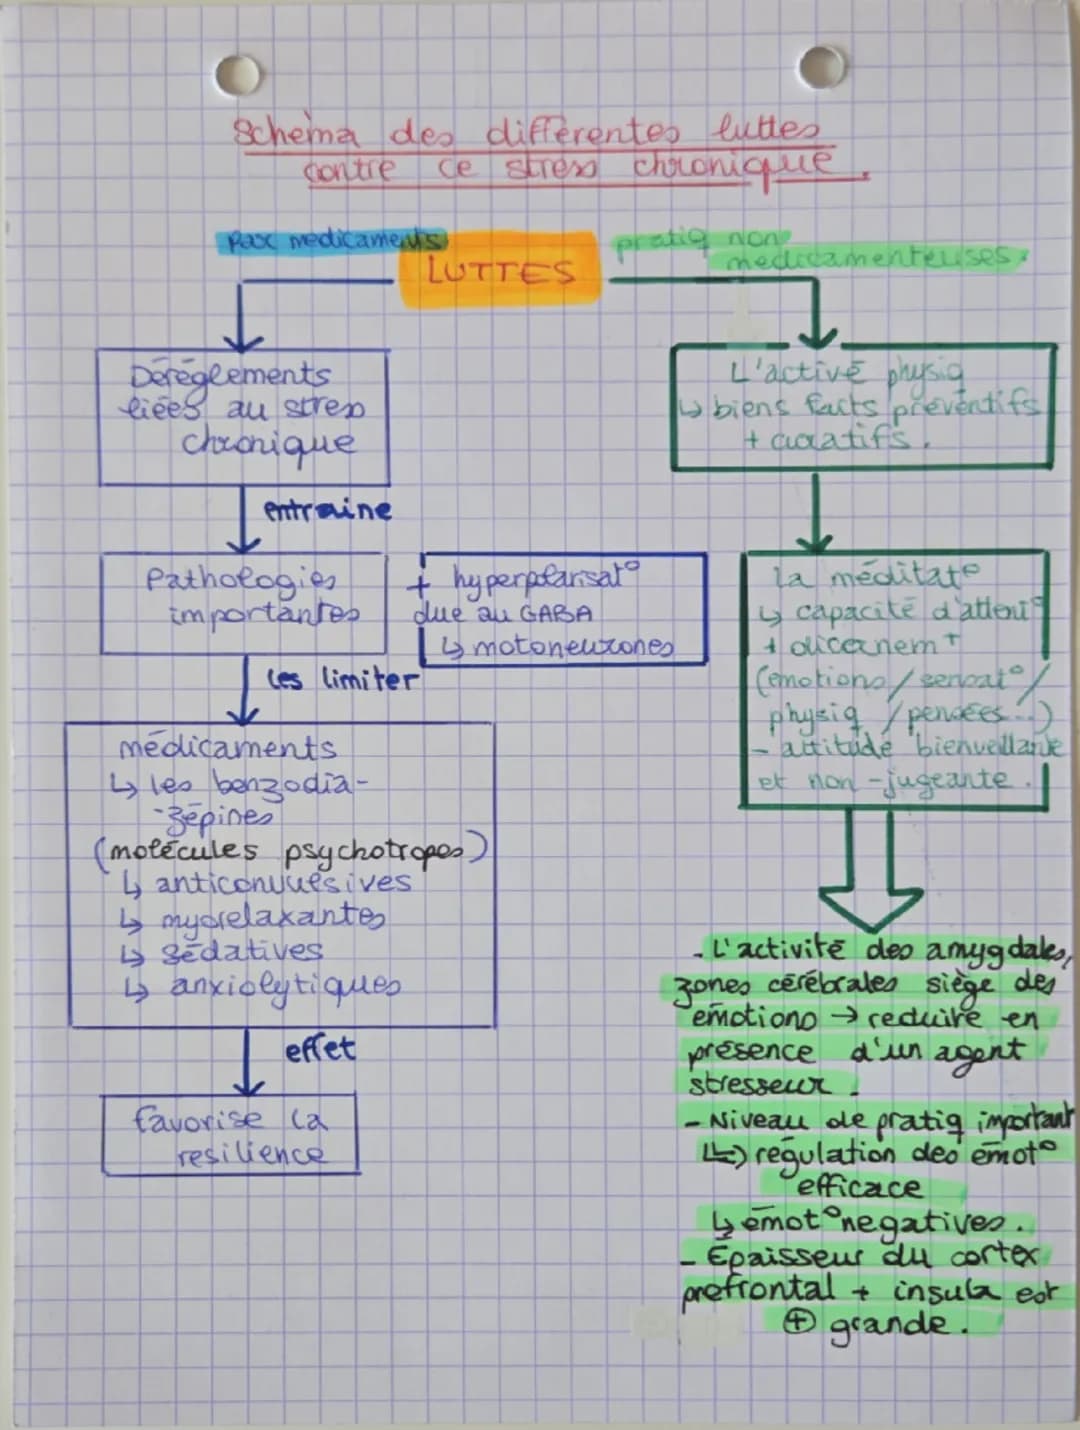 Schéma des différentes luttes
contre ce stress chronique.
par medicaments
LUTTES
pratiq non
medicamenteuses.
Déréglements
liées au stress
chronique
entraine
Pathologies
importantes
+ hyperpolarisat°
due au GABA
↳ motoneurones
les limiter
médicaments
↳ les benzodia-
-zépines
(molécules psychotropes)
↳ anticonvulsives
↳ myorelaxantes
↳ sédatives
↳ anxiolytiques
effet
favorise la
resilience
L'activé physiq
↳ biens facts préventifs
+ curatifs.
la méditat°
↳ capacité d'attent°
+ dicernem^t
(emotions/sensat°/
physiq /pensées...)
- attitude bienveillante
et non-jugeante.
- L'activité des amygdales,
zones cérébrales siège des
émotions → reduire en
présence d'un agent
stresseur.
- Niveau de pratiq important
↳ régulation des émot°
efficace
↳ émot° negatives.
- Épaisseur du cortex
prefrontal + insula est
⊕ grande.